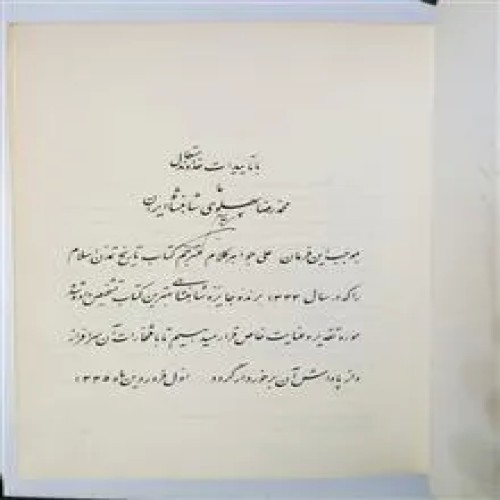 با تأییدات خداوند متعال
ما
محمدرضا پهلوی شاهنشاه ایران
بموجب این فرمان علی جواهرکلام مترجم کتاب تاریخ تمدن اسلام
را که در سال ۱۳۳۴ برنده جایزه شاهنشاهی بهترین کتاب تشخیص داده شد
مورد تقدیر و عنایت خاص قرار میدهیم تا با افتخارات آن سرافراز
و از پاداش آن برخوردار گردد اول فروردین ماه ۱۳۳۵